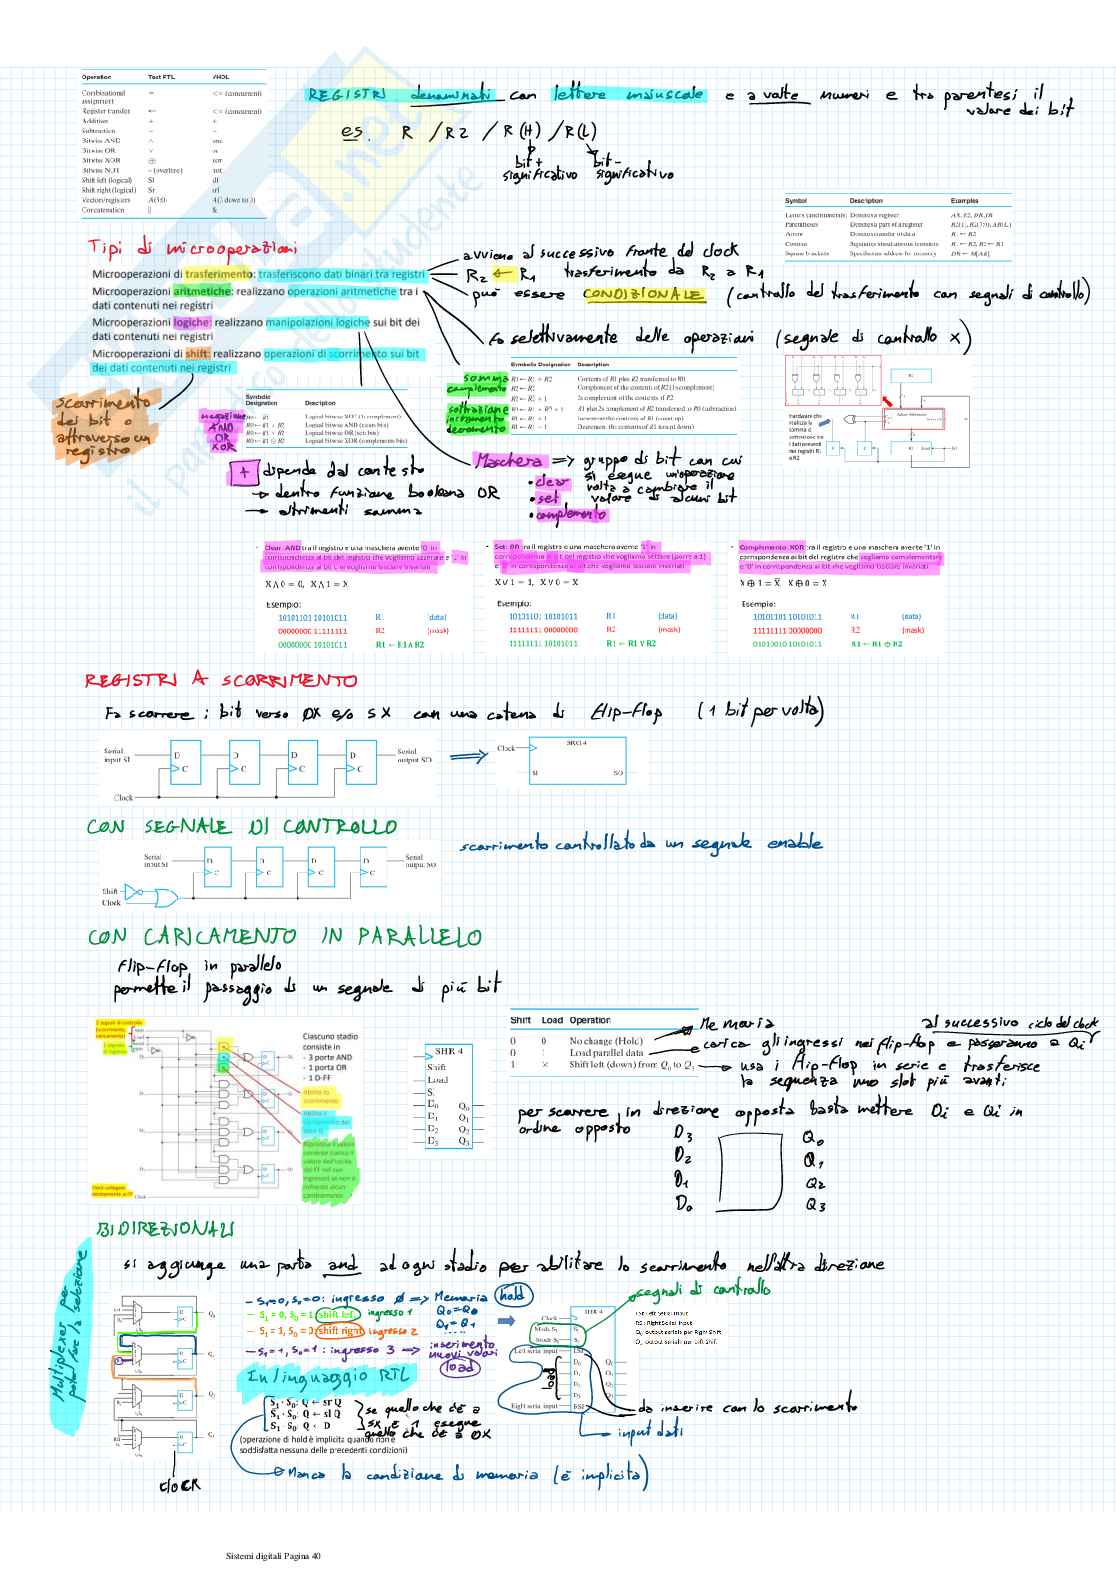 Operation Text RTL VHDL
Combinational assignment = <= (concurrent)
Register transfer ← <= (concurrent)
Addition + +
Subtraction − −
Bitwise AND ∧ and
Bitwise OR ∨ or
Bitwise XOR ⊕ xor
Bitwise NOT ‾ (overline) not
Shift left (logical) sl sll
Shift right (logical) sr srl
Vectors/registers A(3:0) A(3 down to 0)
Concatenation || &
REGISTRI denominati con lettere maiuscole e a volte numeri e tra parentesi il
valore dei bit
es. R / R2 / R(H) / R(L)
bit + significativo
bit - significativo
Symbol Description Examples
Letters (and numerals) Denotes a register AR, R2, DR, IR
Parentheses Denotes a part of a register
Arrow Denotes transfer of data R1 ← R2
Comma Separates simultaneous transfers R1 ← R2, R2 ← R1
Square brackets Specifies an address for memory DR ← M[AR]
Tipi di microoperazioni
Microoperazioni di trasferimento: trasferiscono dati binari tra registri
Microoperazioni aritmetiche: realizzano operazioni aritmetiche tra i
dati contenuti nei registri
Microoperazioni logiche: realizzano manipolazioni logiche sui bit dei
dati contenuti nei registri
Microoperazioni di shift: realizzano operazioni di scorrimento sui bit
dei dati contenuti nei registri
avviene al successivo fronte del clock
R2 ← R1 trasferimento da R2 a R1
può essere CONDIZIONALE (controllo del trasferimento con segnali di controllo)
Fa selettivamente delle operazioni (segnale di controllo X)
scorrimento
dei bit o
attraverso un
registro
negazione
AND
OR
XOR
Symbolic Designation Description
Logical bitwise NOT (1s complement)
Logical bitwise AND (clears bits)
Logical bitwise OR (sets bits)
Logical bitwise XOR (complements bits)
somma
complemento
sottrazione
incremento
decremento
Symbolic Designation Description
R0 ← R1 + R2 Contents of R1 plus R2 transferred to R0
Complement of the contents of R2 (1s complement)
2s complement of the contents of R2
R1 plus 2s complement of R2 transferred to R0 (subtraction)
R1 ← R1 + 1 Increment the contents of R1 (count up)
R1 ← R1 − 1 Decrement the contents of R1 (count down)
hardware che
realizza la
somma e
sottrazione tra
i dati presenti
nei registri R1
e R2
+ dipende dal contesto
→ dentro funzione booleana OR
→ altrimenti somma
Maschera => gruppo di bit con cui
si esegue un'operazione
volta a cambiare il
valore di alcuni bit
• clear
• set
• complemento
Clear: AND tra il registro e una maschera avente '0' in
corrispondenza ai bit del registro che vogliamo azzerare e '1' in
corrispondenza ai bit che vogliamo lasciare invariati
X∧0 = 0, X∧1 = X
Esempio:
10101101 10101011 R1 (data)
00000000 11111111 R2 (mask)
00000000 10101011 R1 ← R1 ∧ R2
Set: OR tra il registro e una maschera avente '1' in
corrispondenza ai bit del registro che vogliamo settare (porre a 1)
e '0' in corrispondenza ai bit che vogliamo lasciare invariati
X∨1 = 1, X∨0 = X
Esempio:
10101101 10101011 R1 (data)
11111111 00000000 R2 (mask)
11111111 10101011 R1 ← R1 ∨ R2
Complemento: XOR tra il registro e una maschera avente '1' in
corrispondenza ai bit del registro che vogliamo complementare
e '0' in corrispondenza ai bit che vogliamo lasciare invariati
X⊕1 = X̅ X⊕0 = X
Esempio:
10101101 10101011 R1 (data)
11111111 00000000 R2 (mask)
01010010 10101011 R1 ← R1 ⊕ R2
REGISTRI A SCORRIMENTO
Fa scorrere i bit verso DX e/o SX con una catena di Flip-Flop (1 bit per volta)
Serial input SI D C D C D C D C Serial output SO
Clock
Clock SRG 4
SI SO
CON SEGNALE DI CONTROLLO
scorrimento controllato da un segnale enable
Serial input SI D C D C D C D C Serial output SO
Shift
Clock
CON CARICAMENTO IN PARALLELO
Flip-Flop in parallelo
permette il passaggio di un segnale di più bit
2 segnali di controllo
(scorrimento,
caricamento)
Ciascuno stadio
consiste in
- 3 porte AND
- 1 porta OR
- 1 D-FF
Clock
SHR 4
Shift
Load
SI
D0 Q0
D1 Q1
D2 Q2
D3 Q3
Shift Load Operation
0 0 No change (Hold)
0 1 Load parallel data
1 × Shift left (down) from Q0 to Q3
Memoria
al successivo ciclo del clock
carica gli ingressi nei flip-flop e passeranno a Qi
usa i flip-flop in serie e trasferisce
la sequenza uno slot più avanti
per scorrere in direzione opposta basta mettere Di e Qi in
ordine opposto
D3 Q0
D2 Q1
D1 Q2
D0 Q3
BIDIREZIONALI
si aggiunge una porta and ad ogni stadio per abilitare lo scorrimento nell'altra direzione
Multiplexer per
poter fare la selezione
CLOCK
- S1=0, S0=0: ingresso 0 => Memoria hold
- S1 = 0, S0 = 1: shift left ingresso 1 Q0=Q0
- S1 = 1, S0 = 0: shift right ingresso 2 Q1=Q1
- S1=1, S0=1: ingresso 3 → inserimento nuovi valori
load
In linguaggio RTL
S1 · S0: Q ← sr Q
S1 · S0: Q ← sl Q
S1 S0 Q ← D
(operazione di hold è implicita quando non è
soddisfatta nessuna delle precedenti condizioni)
se quello che c'è a
sx è 1 esegue
quello che c'è a DX
Manca la condizione di memoria (è implicita)
segnali di controllo
SHR 4
Clock
Mode S1
Mode S0
Left serial input LSI
D0 Q0
D1 Q1
D2 Q2
D3 Q3
Right serial input RSI
load
LSI: Left Serial Input
RSI: Right Serial Input
Q3 output seriale per Right Shift
Q0 output seriale per Left Shift
da inserire con lo scorrimento
input dati
Sistemi digitali Pagina 40